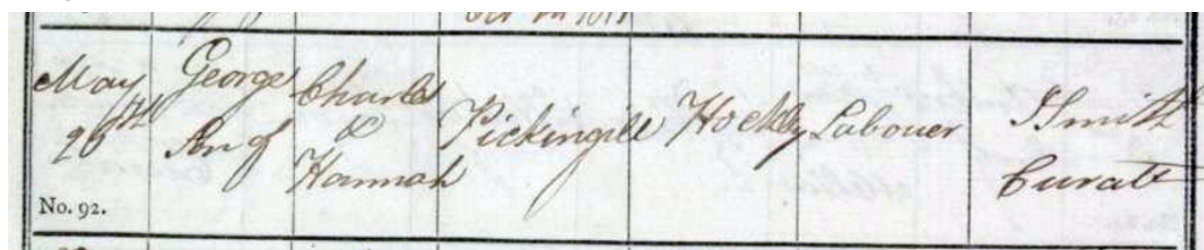 May
26th
No. 92.
George
Son of
Charles
&
Hannah
Pickingill
Hockley
Labouer
Smith
Curate